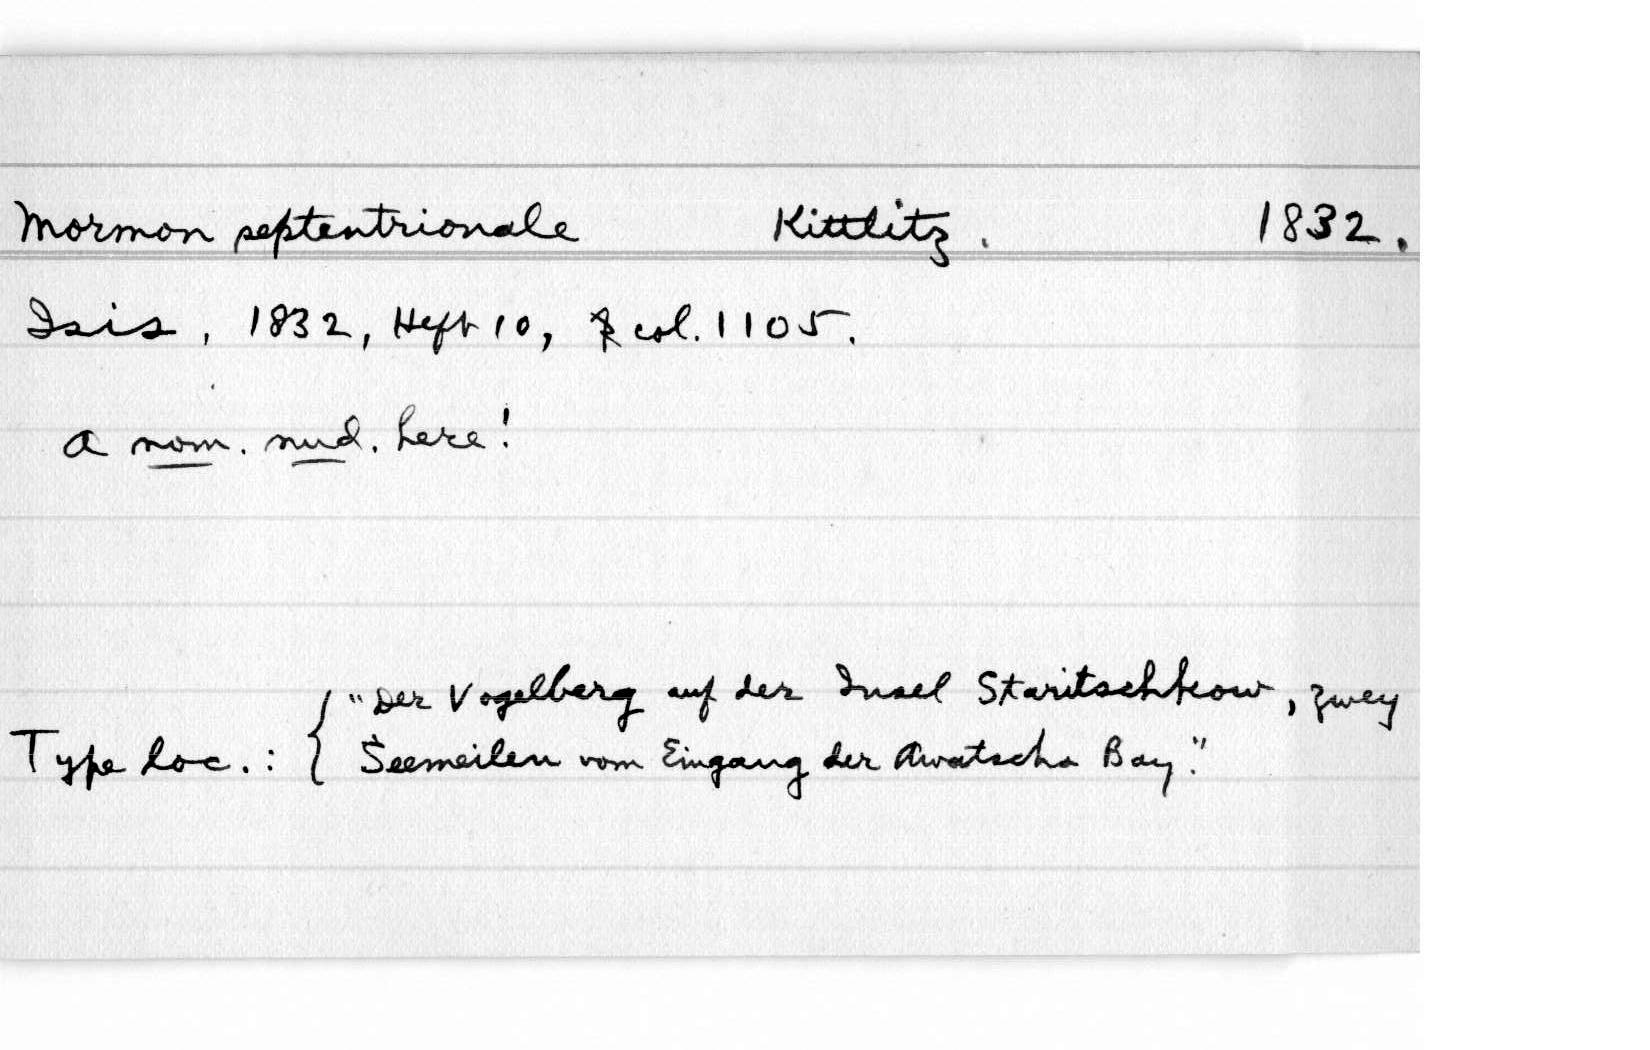 Mormon septentrionale Kittlitz. 1832.
Isis, 1832, Heft 10, col. 1105.
a nom. nud. here!
"Der Vogelberg auf der Insel Staritschkow, zwey
Type loc.: { Seemeilen vom Eingang der Awatscha Bay."